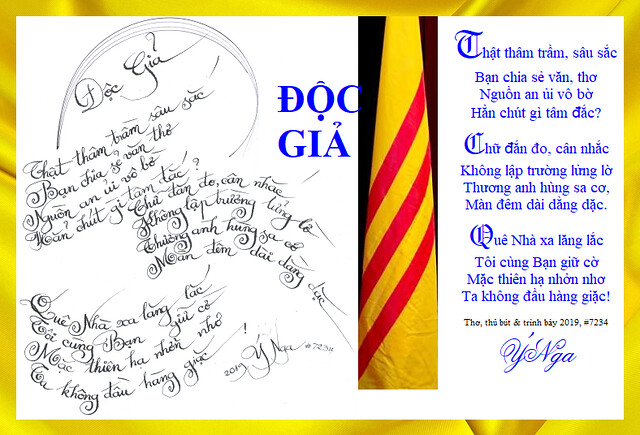 Độc Giả
Thật thâm trầm sâu sắc
Bạn chia sẻ văn thơ
Nguồn an ủi vô bờ
Hẳn chút gì tâm đắc?
Chữ đắn đo, cân nhắc
Không lập trường lửng lờ
Thương anh hùng sa cơ
Màn đêm dài dằng dặc
Quê Nhà xa lăng lắc
Tôi cùng Bạn giữ cờ
Mặc thiên hạ nhởn nhơ
Ta không đầu hàng giặc!
2019 Ý Nga #7234
ĐỘC
GIẢ
Thật thâm trầm, sâu sắc
Bạn chia sẻ văn, thơ
Nguồn an ủi vô bờ
Hẳn chút gì tâm đắc?
Chữ đắn đo, cân nhắc
Không lập trường lửng lờ
Thương anh hùng sa cơ,
Màn đêm dài dằng dặc.
Quê Nhà xa lăng lắc
Tôi cùng Bạn giữ cờ
Mặc thiên hạ nhởn nhơ
Ta không đầu hàng giặc!
Thơ, thủ bút & trình bày 2019, #7234
Ý Nga